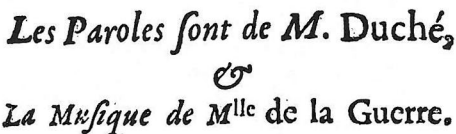 Les Paroles ſont de M. Duché,
&
La Muſique de Mlle de la Guerre.